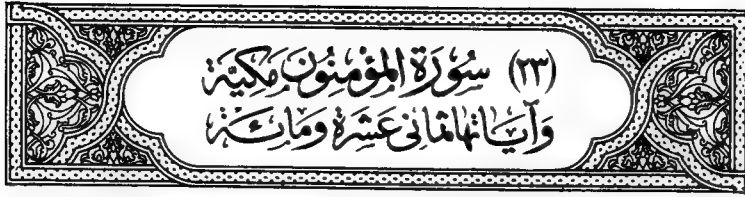 (٢٣) سُورَةُ المؤْمِنُونَ مَكِيَّة
وَآيَاتها ثمَانى عَشِرَة وَمائِة